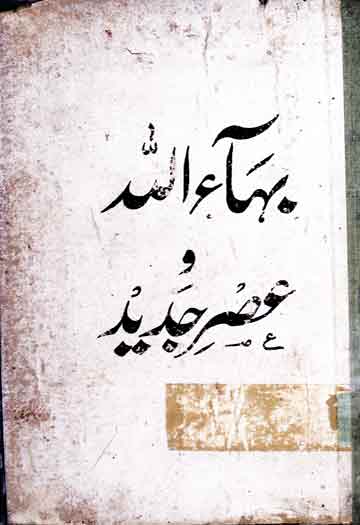 بهآء الله
و
عصر جدید